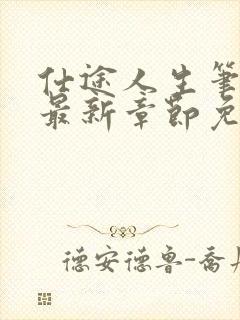 仕途人生筆
最新章節免
德安德鲁-喬